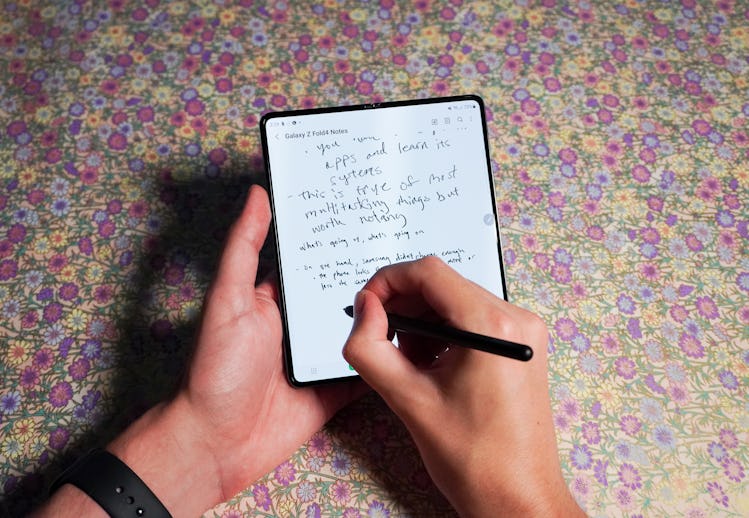 Galaxy Z Fold4 Notes
you
apps and learn its
systems
- This is true of most
multitasking things but
worth noting
what's going on, what's going on
- On one hand, Samsung didn't change enough
the phone looks more or
less the